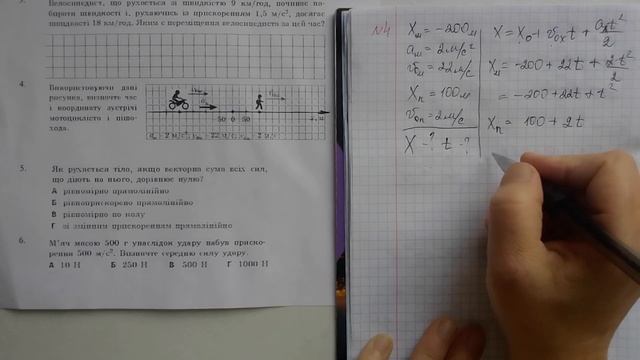 Велосипедист, що рухається зі швидкістю 9 км/год, починає
швидкості і, рухаючись із прискоренням 1,5 м/с², досягає
швидкості 18 км/год. Яким є переміщення велосипедиста за цей час?
4.
Використовуючи дані
рисунка, визначте час
і координату зустрічі
мотоцикліста і пішо-
хода.
50 0 50
5.
Як рухається тіло, якщо векторна сума всіх сил,
що діють на нього, дорівнює нулю?
А рівномірно прямолінійно
Б рівноприскорено прямолінійно
В рівномірно по колу
Г зі змінним прискоренням прямолінійно
6.
М'яч масою 500 г унаслідок удару набув приско-
рення 500 м/с². Визначте середню силу удару.
А 10 Н Б 250 Н В 500 Н Г 1000 Н
№4
Xм = -200м
aм = 2м/с²
v0м = 22м/с
Xп = 100м
v0п = 2м/с
X - ? t - ?
X = X0 + v0x t + axt²/2
Xм = -200 + 22t + 2t²/2
= -200 + 22t + t²
Xп = 100 + 2t